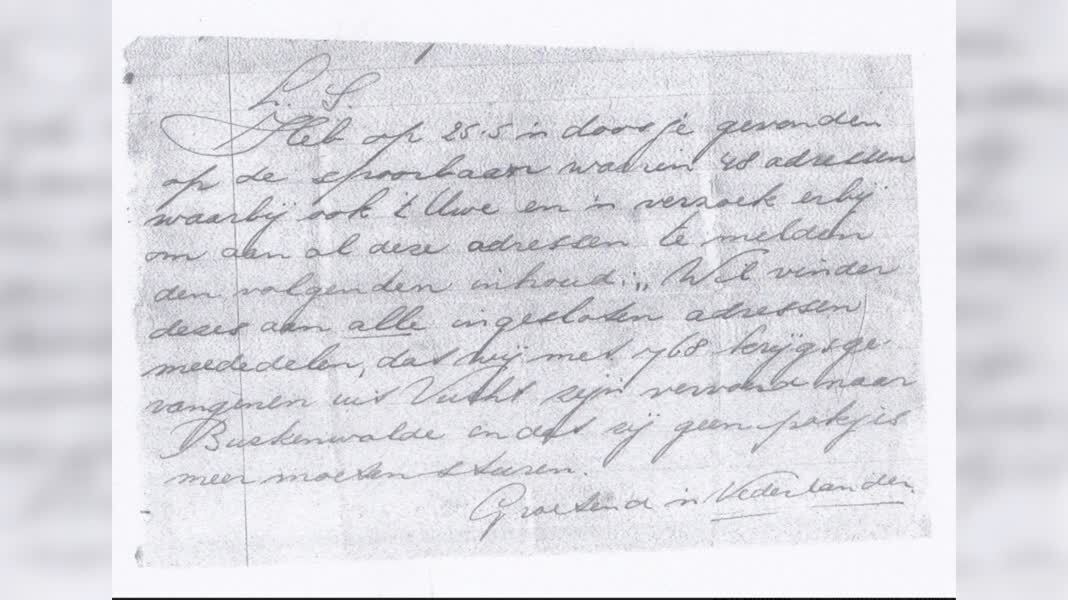 L. S.
Heb op 25.5 'n doosje gevonden
op de spoorbaan waarin 48 adressen
waarbij ook 't Uwe en 'n verzoek erbij
om aan al deze adressen te melden
den volgenden inhoud: „Wil vinder
dezes aan alle ingesloten adressen
mededelen, dat wij met 768 krijgsge-
vangenen uit Vucht zijn vervoerd naar
Buckenwalde en dat zij geen pakjes
meer moeten sturen.
Groetend 'n Nederlander.